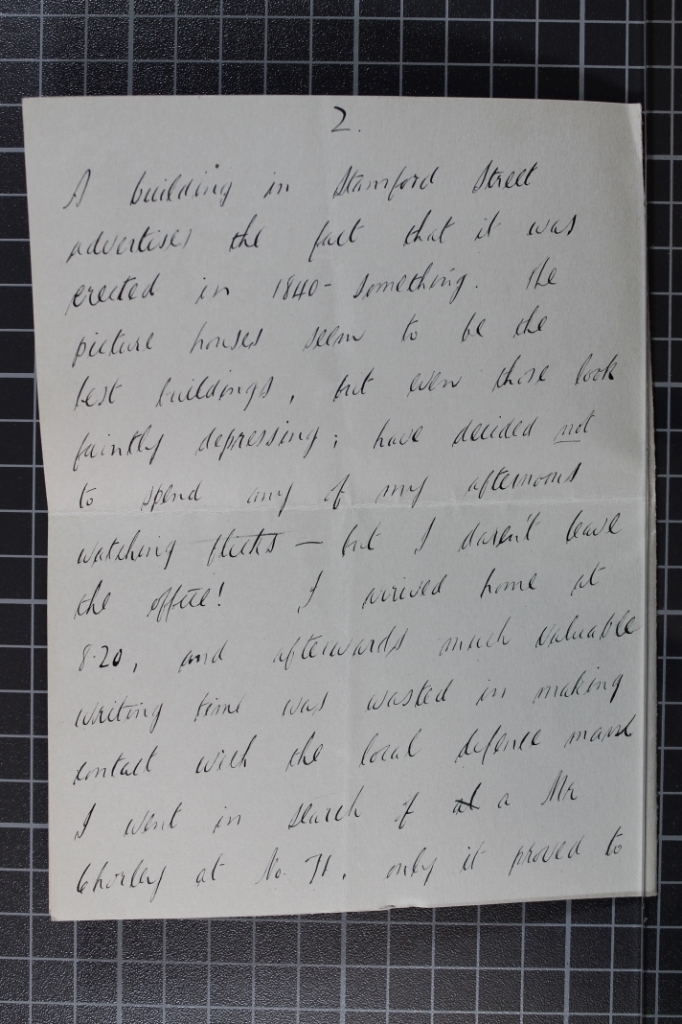 2.
A building in Stamford Street
advertises the fact that it was
erected in 1840-something. The
picture houses seem to be the
best buildings, but even those look
faintly depressing; have decided not
to spend any of my afternoons
watching flicks — but I daren't leave
the office! I arrived home at
8.20, and afterwards much valuable
writing time was wasted in making
contact with the local defence
I went in search of a Mr
Chorley at No. 71, only it proved to